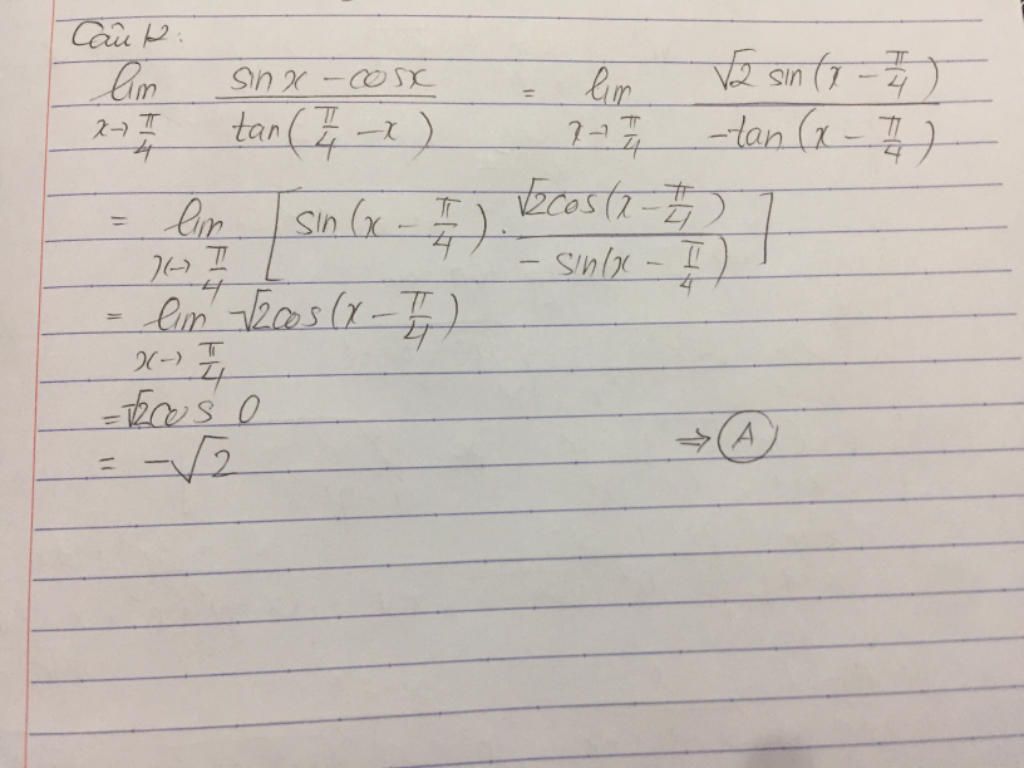 Câu 12:
lim x→π/4 (sinx − cosx)/(tan(π/4 − x)) = lim x→π/4 (√2 sin(x − π/4))/(−tan(x − π/4))
= lim x→π/4 [sin(x − π/4) · (√2cos(x − π/4))/(− sin(x − π/4))]
= lim x→π/4 −√2cos(x − π/4)
= −√2cos 0
= −√2 ⇒ A